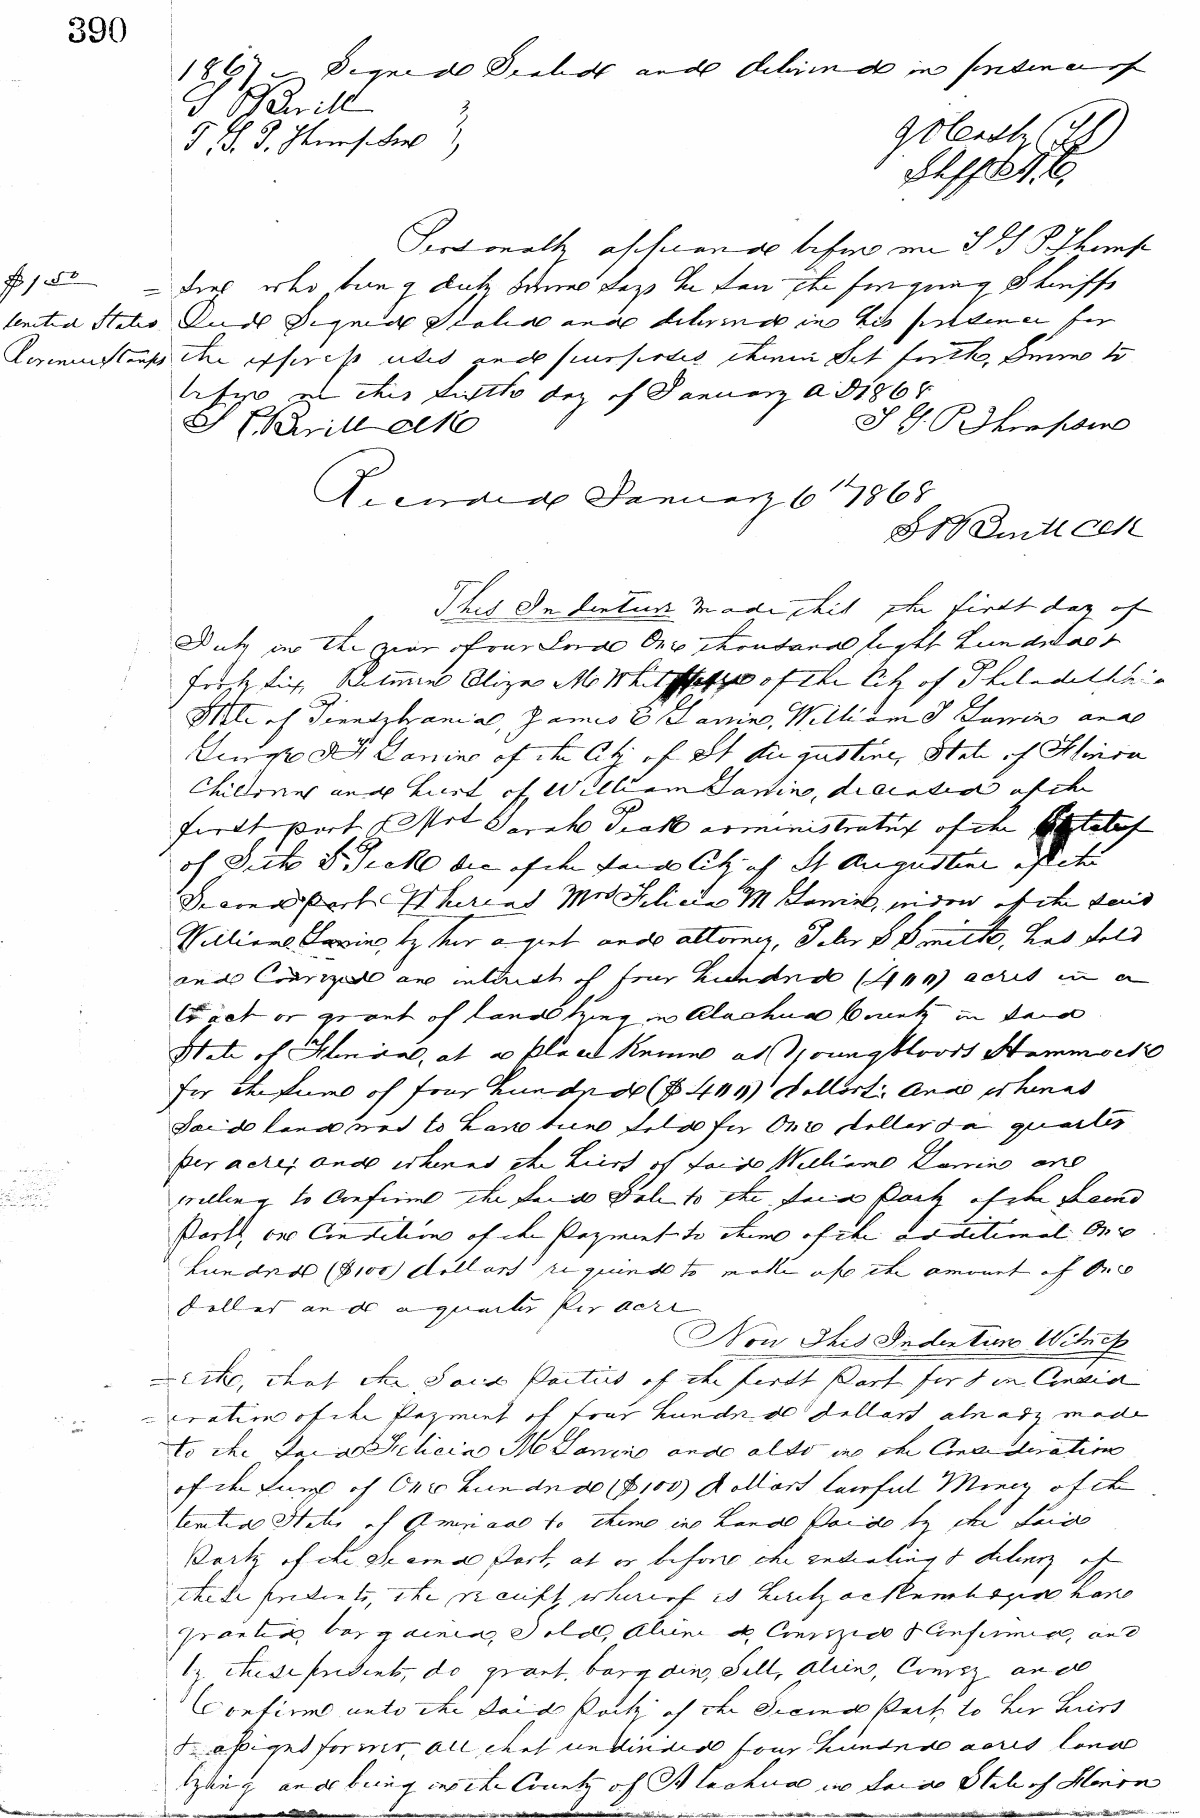 390
1867 Signed Sealed and delivered in presence of
S
T. G. P. Thompson
Shff A. C.
Personally appeared before me T G P Thomp
$1.50 = son who being duly sworn says he saw the foregoing Sheriffs
United States Deed Signed Sealed and delivered in his presence for
Revenue Stamps the express uses and purposes therein Set forth, Sworn to
before me this Sixth day of January A D 1868
T G. P Thompson
Recorded January 6th 1868
This Indenture made this the first day of
July in the year of our Lord One thousand eight hundred &
forty six, Between Eliza M of the City of Philadelphia
State of Pennsylvania, James E Garvin, William J Garvin and
George Garvin of the City of St Augustine, State of Florida
Children and heirs of William Garvin, deceased of the
first part & Mrs Sarah Peck administratrix of the Estate of
of Seth S. Peck dec of the said City of St Augustine of the
Second part Whereas Mrs Felicia M Garvin, widow of the said
William Garvin, by her agent and attorney, Peter S Smith, has sold
and Conveyed an interest of four hundred (400) acres in a
tract or grant of land lying in Alachua County in said
State of Florida, at a place Known as Youngbloods Hammock
for the Sum of four hundred ($400) dollars: and whereas
said land was to have been sold for One dollar & a quarter
per acre; and whereas the heirs of said William Garvin are
willing to Confirm the Said Sale to the said Party of the Second
Part, on Condition of the Payment to them of the additional One
hundred ($100) dollars required to make up the amount of One
dollar and a quarter Per acre
Now This Indenture Witness
=eth, that the Said Parties of the first Part for & in Consid
=eration of the Payment of four hundred dollars already made
to the Said Felicia M Garvin and also in the Consideration
of the Sum of One hundred ($100) dollars lawful Money of the
United States of America to them in hand Paid by the Said
Party of the Second Part, at or before the ensealing & delivery of
these presents, the receipt whereof is hereby acknowledged have
granted, bargained, Sold, Aliened, Conveyed & Confirmed, and
by these presents, do grant, bargain, Sell, alien, Convey and
Confirm unto the Said Party of the Second Part, to her heirs
& assigns forever, all that undivided four hundred acres land
lying and being in the County of Alachua in Said State of Florida